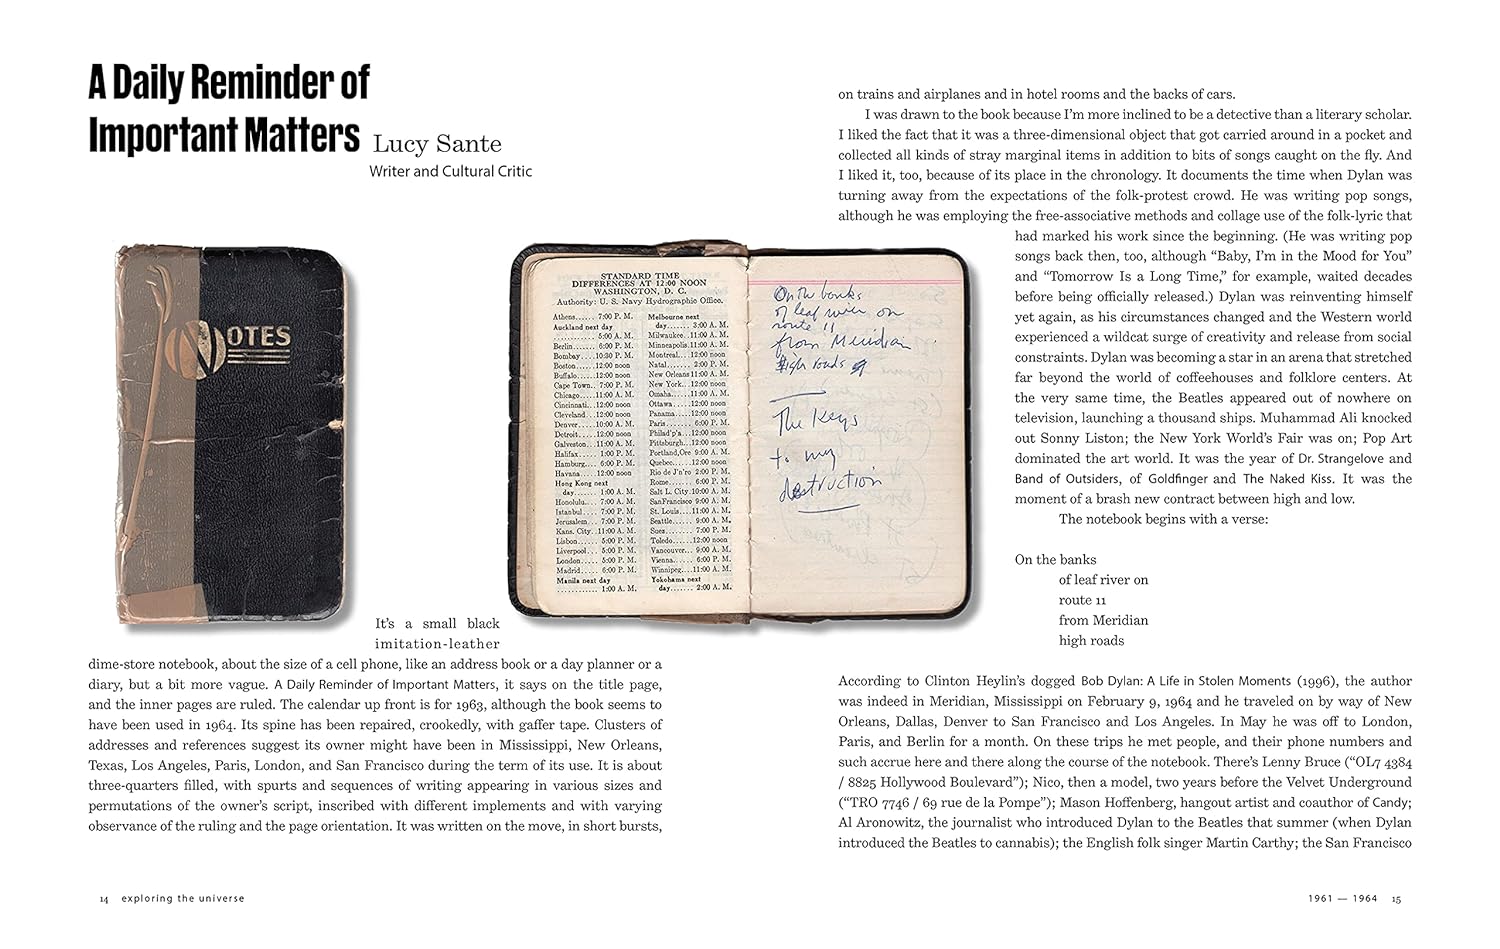 A Daily Reminder of
Important Matters
Lucy Sante
Writer and Cultural Critic
NOTES
STANDARD TIME
DIFFERENCES AT 12:00 NOON
WASHINGTON, D. C.
Authority: U. S. Navy Hydrographic Office.
Athens...... 7:00 P. M.
Auckland next day
............ 5:00 A. M.
Berlin....... 6:00 P. M.
Bombay....10:30 P. M.
Boston......12:00 noon
Buffalo......12:00 noon
Cape Town.. 7:00 P. M.
Chicago.....11:00 A. M.
Cincinnati...12:00 noon
Cleveland...12:00 noon
Denver......10:00 A. M.
Detroit......12:00 noon
Galveston...11:00 A. M.
Halifax...... 1:00 P. M.
Hamburg.... 6:00 P. M.
Havana......12:00 noon
Hong Kong next
day....... 1:00 A. M.
Honolulu.... 7:00 A. M.
Istanbul..... 7:00 P. M.
Jerusalem... 7:00 P. M.
Kans. City..11:00 A. M.
Lisbon...... 5:00 P. M.
Liverpool... 5:00 P. M.
London..... 5:00 P. M.
Madrid..... 6:00 P. M.
Manila next day
............ 1:00 A. M.
Melbourne next
day....... 3:00 A. M.
Milwaukee..11:00 A. M.
Minneapolis.11:00 A. M.
Montreal...12:00 noon
Natal....... 2:00 P. M.
New Orleans 11:00 A. M.
New York...12:00 noon
Omaha......11:00 A. M.
Ottawa.....12:00 noon
Panama.....12:00 noon
Paris....... 6:00 P. M.
Philad'p'a...12:00 noon
Pittsburgh..12:00 noon
Portland,Ore 9:00 A. M.
Quebec.....12:00 noon
Rio de J'n'ro 2:00 P. M.
Rome....... 6:00 P. M.
Salt L. City.10:00 A. M.
SanFrancisco 9:00 A. M.
St. Louis....11:00 A. M.
Seattle...... 9:00 A. M.
Suez........ 7:00 P. M.
Toledo......12:00 noon
Vancouver... 9:00 A. M.
Vienna...... 6:00 P. M.
Winnipeg...11:00 A. M.
Yokohama next
day....... 2:00 A. M.
On the banks
of leaf river on
route 11
from Meridian
high roads
The Keys
to my
destruction
It’s a small black
imitation-leather
dime-store notebook, about the size of a cell phone, like an address book or a day planner or a
diary, but a bit more vague. A Daily Reminder of Important Matters, it says on the title page,
and the inner pages are ruled. The calendar up front is for 1963, although the book seems to
have been used in 1964. Its spine has been repaired, crookedly, with gaffer tape. Clusters of
addresses and references suggest its owner might have been in Mississippi, New Orleans,
Texas, Los Angeles, Paris, London, and San Francisco during the term of its use. It is about
three-quarters filled, with spurts and sequences of writing appearing in various sizes and
permutations of the owner’s script, inscribed with different implements and with varying
observance of the ruling and the page orientation. It was written on the move, in short bursts,
14 exploring the universe
on trains and airplanes and in hotel rooms and the backs of cars.
I was drawn to the book because I’m more inclined to be a detective than a literary scholar.
I liked the fact that it was a three-dimensional object that got carried around in a pocket and
collected all kinds of stray marginal items in addition to bits of songs caught on the fly. And
I liked it, too, because of its place in the chronology. It documents the time when Dylan was
turning away from the expectations of the folk-protest crowd. He was writing pop songs,
although he was employing the free-associative methods and collage use of the folk-lyric that
had marked his work since the beginning. (He was writing pop
songs back then, too, although “Baby, I’m in the Mood for You”
and “Tomorrow Is a Long Time,” for example, waited decades
before being officially released.) Dylan was reinventing himself
yet again, as his circumstances changed and the Western world
experienced a wildcat surge of creativity and release from social
constraints. Dylan was becoming a star in an arena that stretched
far beyond the world of coffeehouses and folklore centers. At
the very same time, the Beatles appeared out of nowhere on
television, launching a thousand ships. Muhammad Ali knocked
out Sonny Liston; the New York World’s Fair was on; Pop Art
dominated the art world. It was the year of Dr. Strangelove and
Band of Outsiders, of Goldfinger and The Naked Kiss. It was the
moment of a brash new contract between high and low.
The notebook begins with a verse:
On the banks
of leaf river on
route 11
from Meridian
high roads
According to Clinton Heylin’s dogged Bob Dylan: A Life in Stolen Moments (1996), the author
was indeed in Meridian, Mississippi on February 9, 1964 and he traveled on by way of New
Orleans, Dallas, Denver to San Francisco and Los Angeles. In May he was off to London,
Paris, and Berlin for a month. On these trips he met people, and their phone numbers and
such accrue here and there along the course of the notebook. There’s Lenny Bruce (“OL7 4384
/ 8825 Hollywood Boulevard”); Nico, then a model, two years before the Velvet Underground
(“TRO 7746 / 69 rue de la Pompe”); Mason Hoffenberg, hangout artist and coauthor of Candy;
Al Aronowitz, the journalist who introduced Dylan to the Beatles that summer (when Dylan
introduced the Beatles to cannabis); the English folk singer Martin Carthy; the San Francisco
1961 — 1964 15